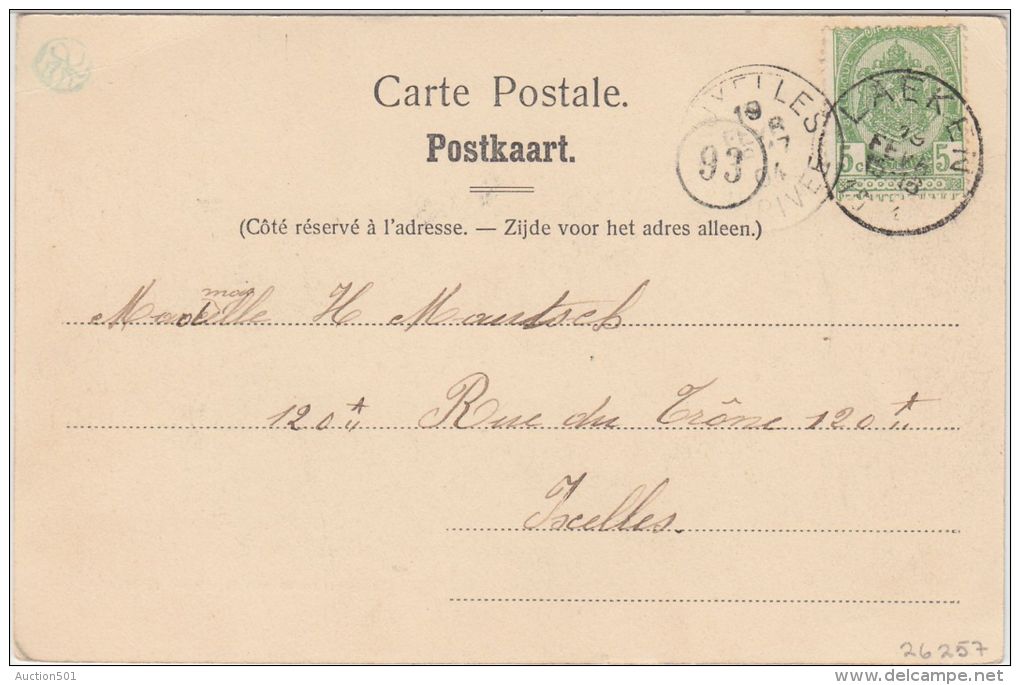 Carte Postale.
Postkaart.
(Côté réservé à l'adresse. — Zijde voor het adres alleen.)
LAEKEN
5 c 5
93
H Mautsch
120A Rue du Trône 120A
Ixelles.
26257
Auction501
delcampe.net